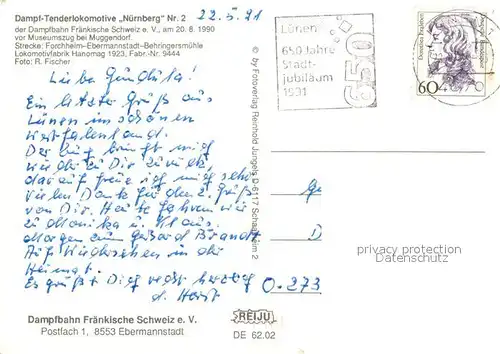 Dampf-Tenderlokomotive „Nürnberg“ Nr. 2
22.5.91
der Dampfbahn Fränkische Schweiz e. V., am 20. 8. 1990
vor Museumszug bei Muggendorf.
Strecke: Forchheim-Ebermannstadt-Behringersmühle
Lokomotivfabrik Hanomag 1923, Fabr.-Nr. 9444
Foto: R. Fischer
Liebe Gundula!
Ein letzter Gruß aus
Lünen im schönen
Westfalenland.
Der Zug bringt mich
wieder zu Dir zurück,
darauf freue ich mich sehr.
Vielen Dank für den 2. Gruß
von Dir. Heute fahren wir
zu Monika u. Klaus.
Morgen zum Geburtstag
Auf Wiedersehen in der
Heimat.
Es grüßt Dich recht herzlich
d. Horst
Dampfbahn Fränkische Schweiz e. V.
Postfach 1, 8553 Ebermannstadt
© by Fotoverlag Reinhold Jungels D-6117 Schaafheim 2
Lünen
650 Jahre
Stadt-
jubiläum
1991
650
Dorothea Erxleben
Deutsche Bundespost
60
D
0.273
privacy protection
Datenschutz
REIJU
DE 62.02